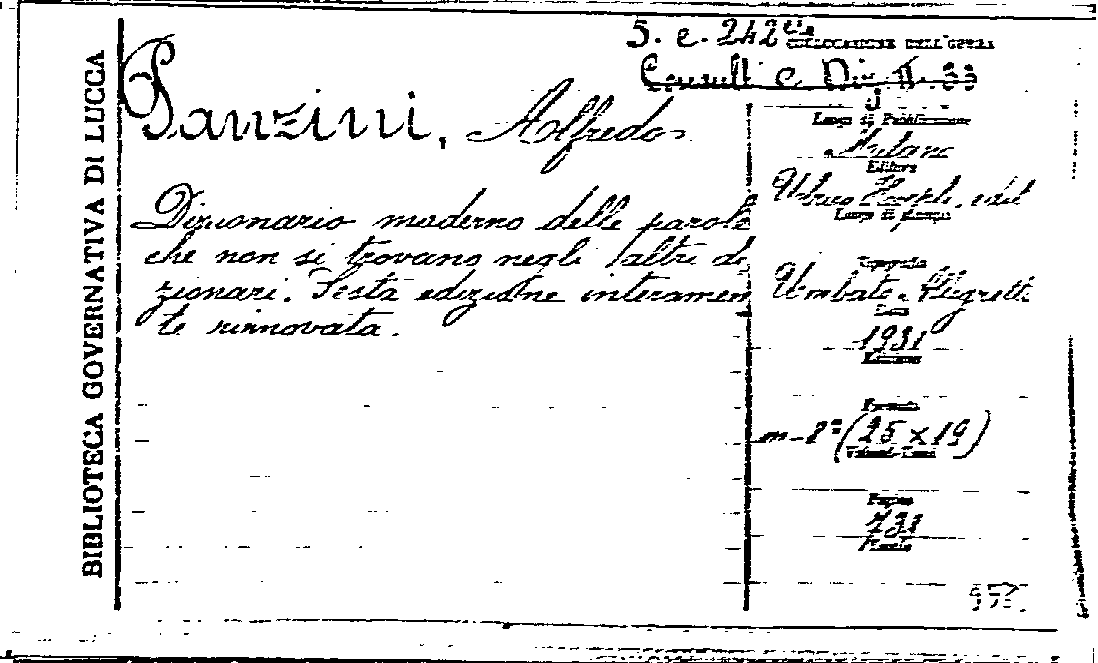 BIBLIOTECA GOVERNATIVA DI LUCCA
5. e. 242
COLLOCAZIONE DELL'OPERA
Consult C. Diz. II. 33
Panzini, Alfredo
Luogo di Pubblicazione
Milano
Editore
Ulrico Hoepli, edit
Luogo di stampa
Dizionario moderno delle parole
che non si trovano negli altri di
zionari. Sesta edizione interamen
te rinnovata.
Tipografia
Umberto Allegretti
Data
1931
Edizione
Formato
in-8° (25 x 19)
Volumi-Tomi
Pagine
731
Tavole